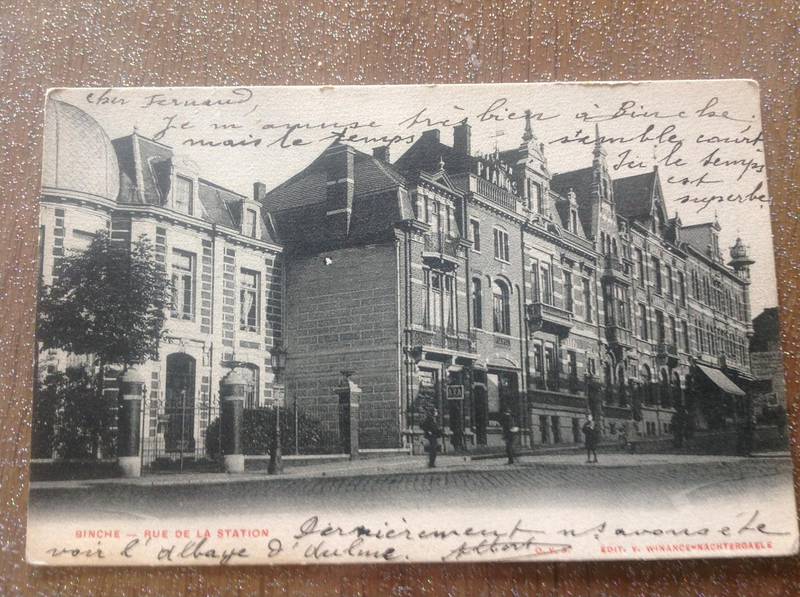 cher Fernand,
Je m'amuse très bien à Binche.
mais le temps semble court
Ici le temps
est
superbe
PIANOS
BINCHE — RUE DE LA STATION
Dernièrement ns avons été
voir l'abbaye d'aulme. Albert
EDIT. V. WINANCE-NACHTERGAELE